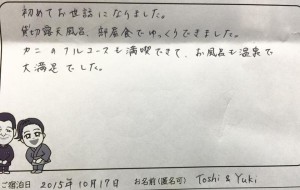 初めてお世話になりました。
貸切露天風呂、部屋食でゆっくりできました。
カニのフルコースも満喫できて、お風呂も温泉で
大満足でした。
ご宿泊日 2015年10月17日 お名前(匿名可) Toshi & Yuki